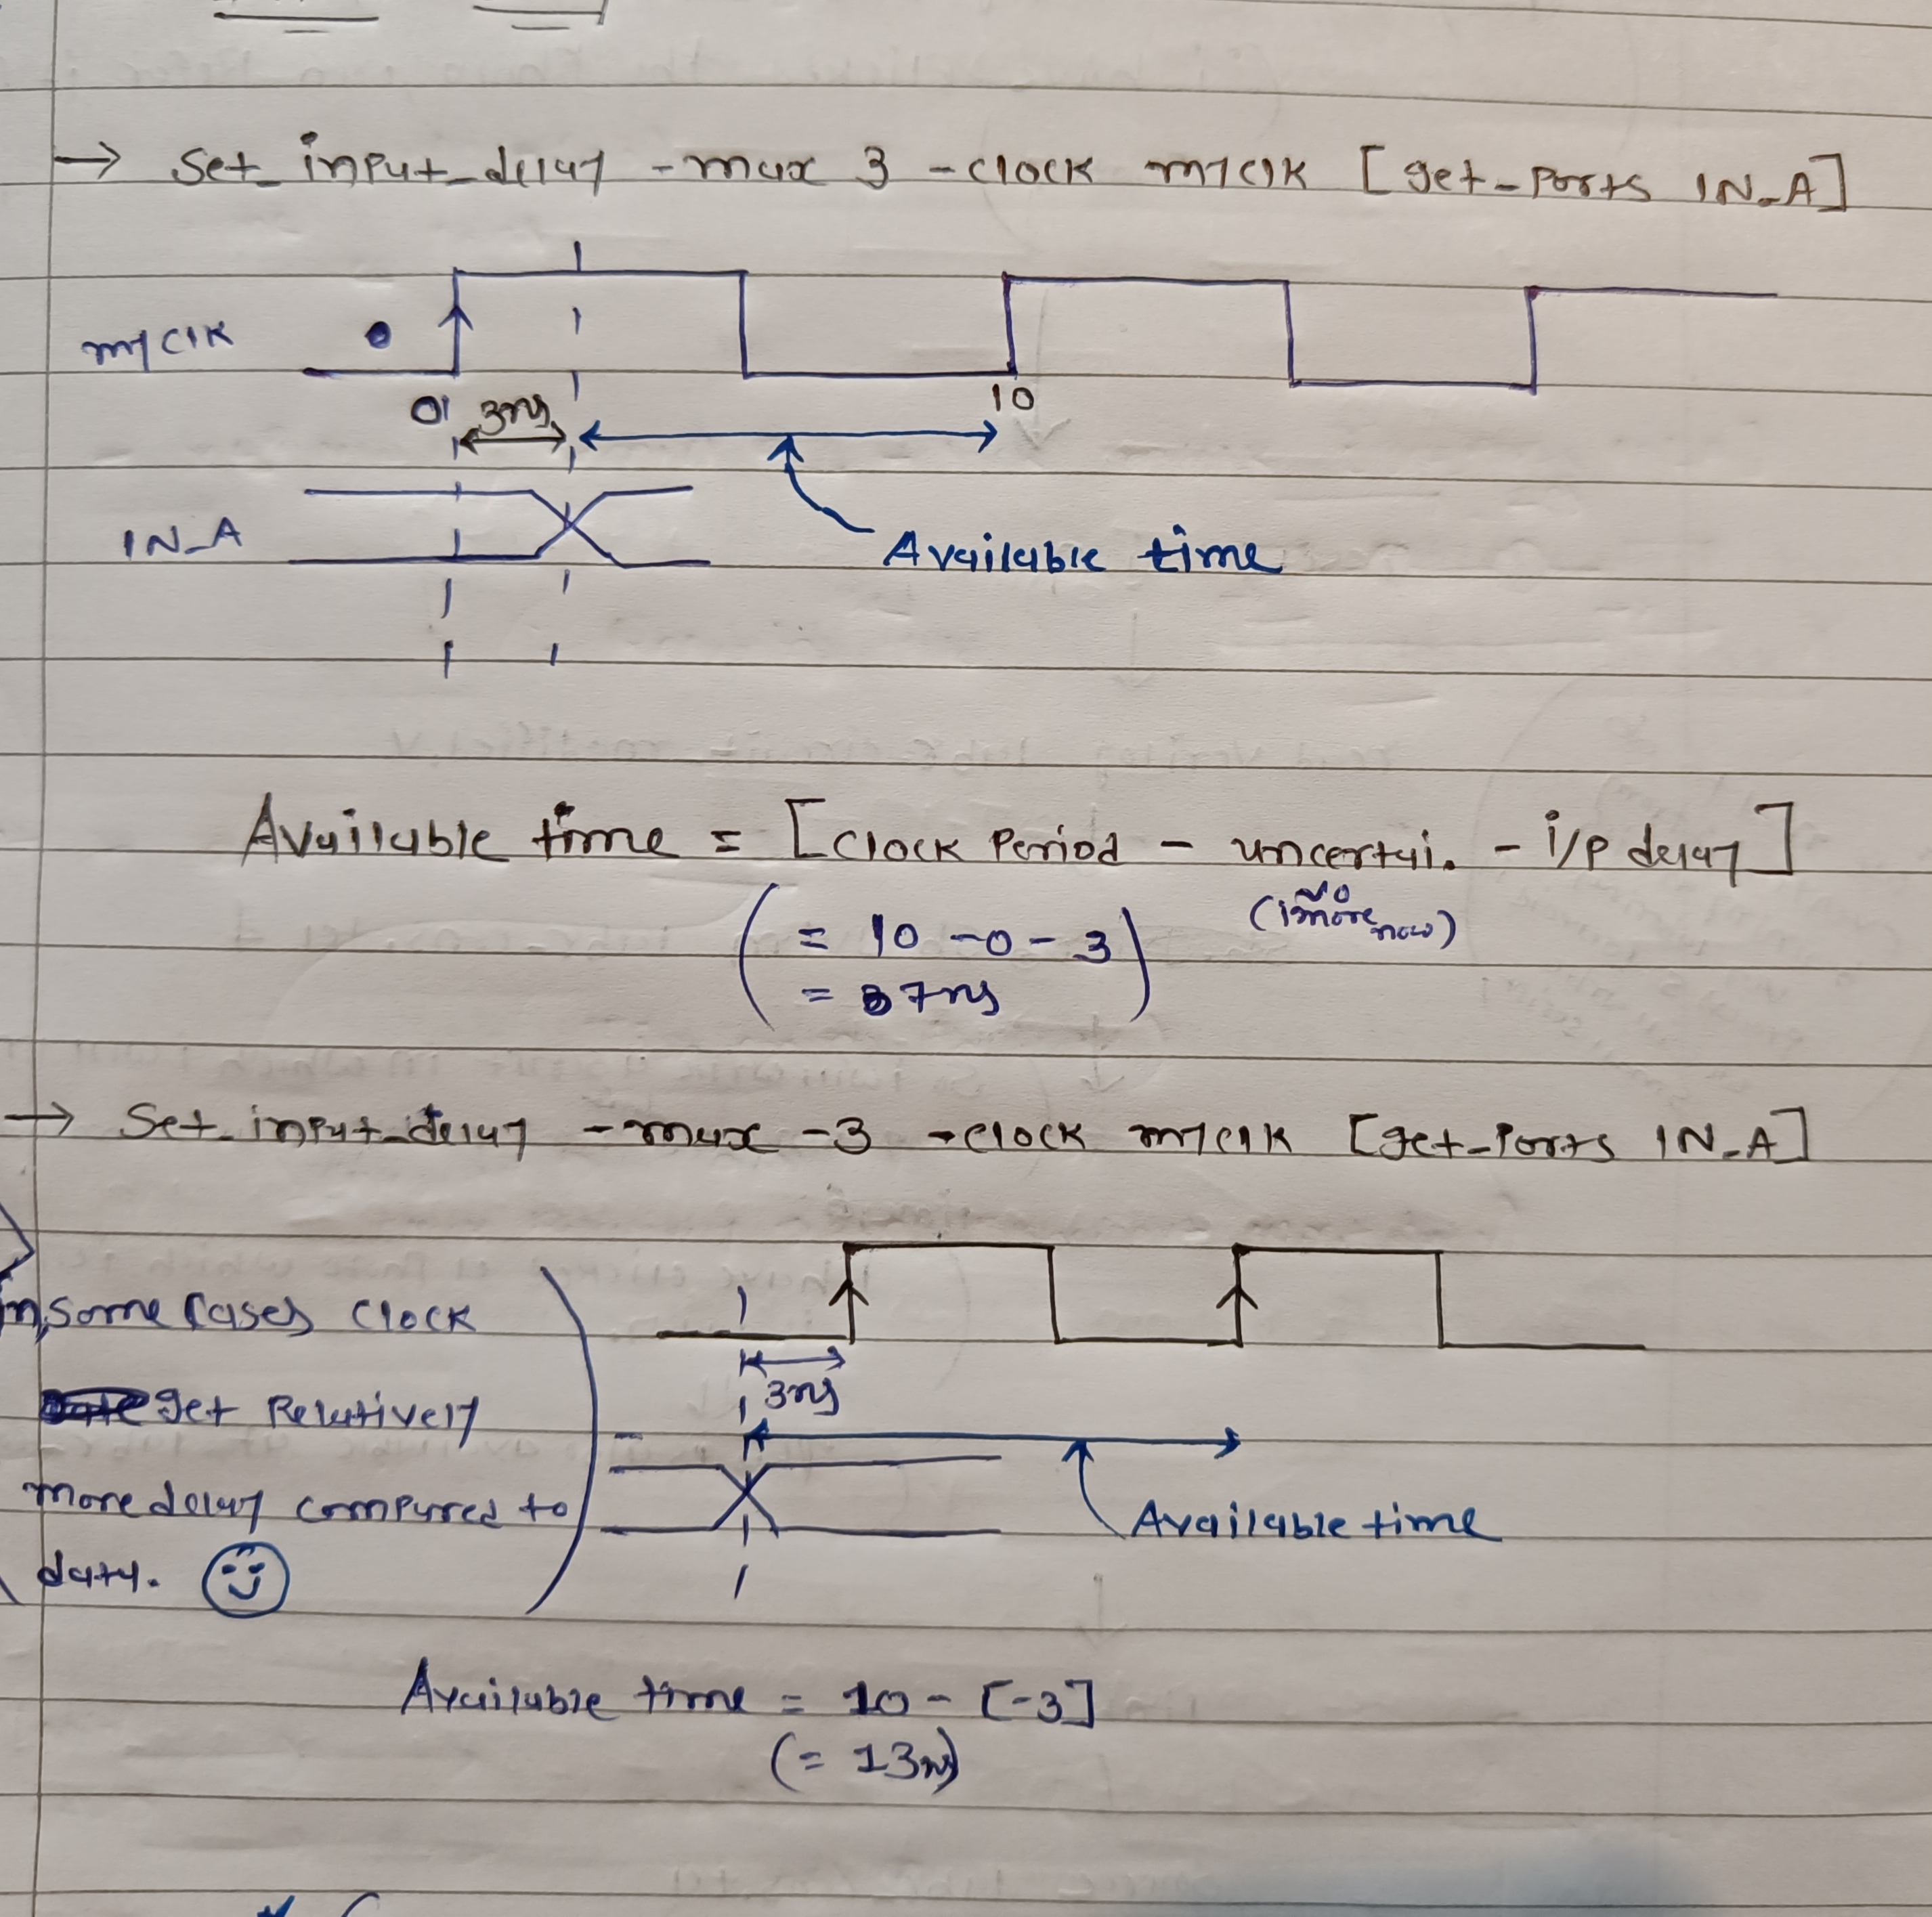 → Set_input_delay -max 3 -clock myclk [get_ports IN_A]
myclk
0 3ns 10
IN_A
Available time
Available time = [Clock Period - uncertai. - i/p delay]
= 10 - 0 - 3
= 7ns
→ Set_input_delay -max -3 -clock myclk [get_Ports IN_A]
in some Cases Clock
get Relatively
more delay compared to
data.
3ns
Available time
Available time = 10 - [-3]
(= 13ns)